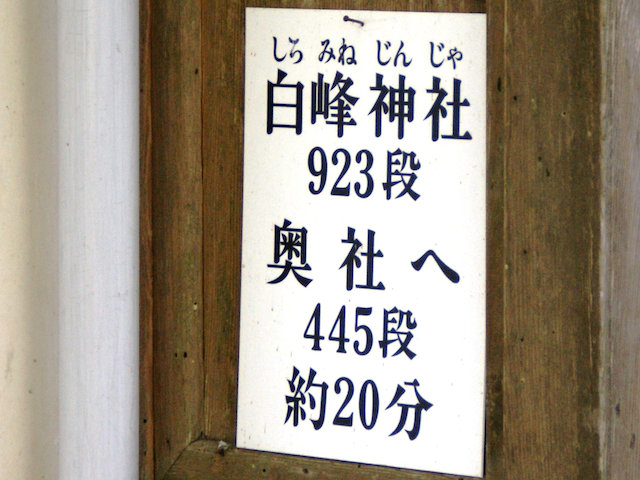 しろ みね じん じゃ
白峰神社
923段
奥社へ
445段
約20分